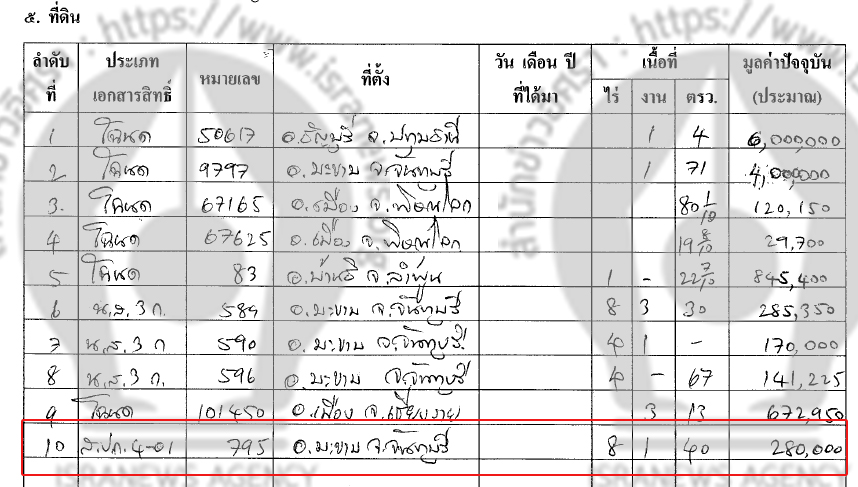 ๕. ที่ดิน
ลำดับที่ ประเภทเอกสารสิทธิ์ หมายเลข ที่ตั้ง วัน เดือน ปี ที่ได้มา เนื้อที่ มูลค่าปัจจุบัน (ประมาณ)
ไร่ งาน ตรว.
1 โฉนด 50617 อ.ธัญบุรี จ.ปทุมธานี 1 4 6,000,000
2 โฉนด 9797 อ.มะขาม จ.จันทบุรี 1 71 4,000,000
3. โฉนด 67165 อ.เมือง จ.พิษณุโลก 80 1/10 120,150
4 โฉนด 67625 อ.เมือง จ.พิษณุโลก 19 8/10 29,700
5 โฉนด 83 อ.บ้านธิ จ.ลำพูน 1 - 22 7/10 845,400
6 น.ส.3 ก. 589 อ.มะขาม จ.จันทบุรี 8 3 30 285,350
7 น.ส.3 ก 590 อ.มะขาม จ.จันทบุรี 4 1 - 170,000
8 น.ส.3 ก. 596 อ.มะขาม จ.จันทบุรี 4 - 67 141,225
9 โฉนด 101450 อ.เมือง จ.เชียงราย 3 13 672,950
10 ส.ปก.4-01 795 อ.มะขาม จ.จันทบุรี 8 1 40 280,000
ISRANEWS AGENCY ISRANEWS AGENCY